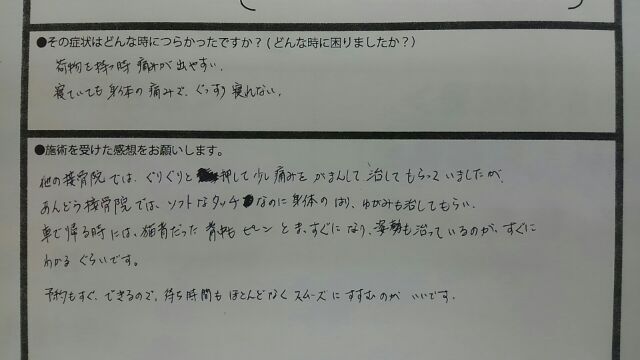 ●その症状はどんな時につらかったですか?(どんな時に困りましたか?)
荷物を持つ時 痛みが出やすい。
寝ていても身体の痛みで、ぐっすり寝れない。
●施術を受けた感想をお願いします。
他の接骨院では、ぐりぐりと押して少し痛みをがまんして治してもらっていましたが、
あんどう接骨院では、ソフトなタッチなのに身体のはり、ゆがみも治してもらい、
車で帰る時には、猫背だった背中もピーンとまっすぐになり、姿勢も治っているのが、すぐに
わかるぐらいです。
予約もすぐできるので、待ち時間もほとんどなくスムーズにすすむのがいいです。